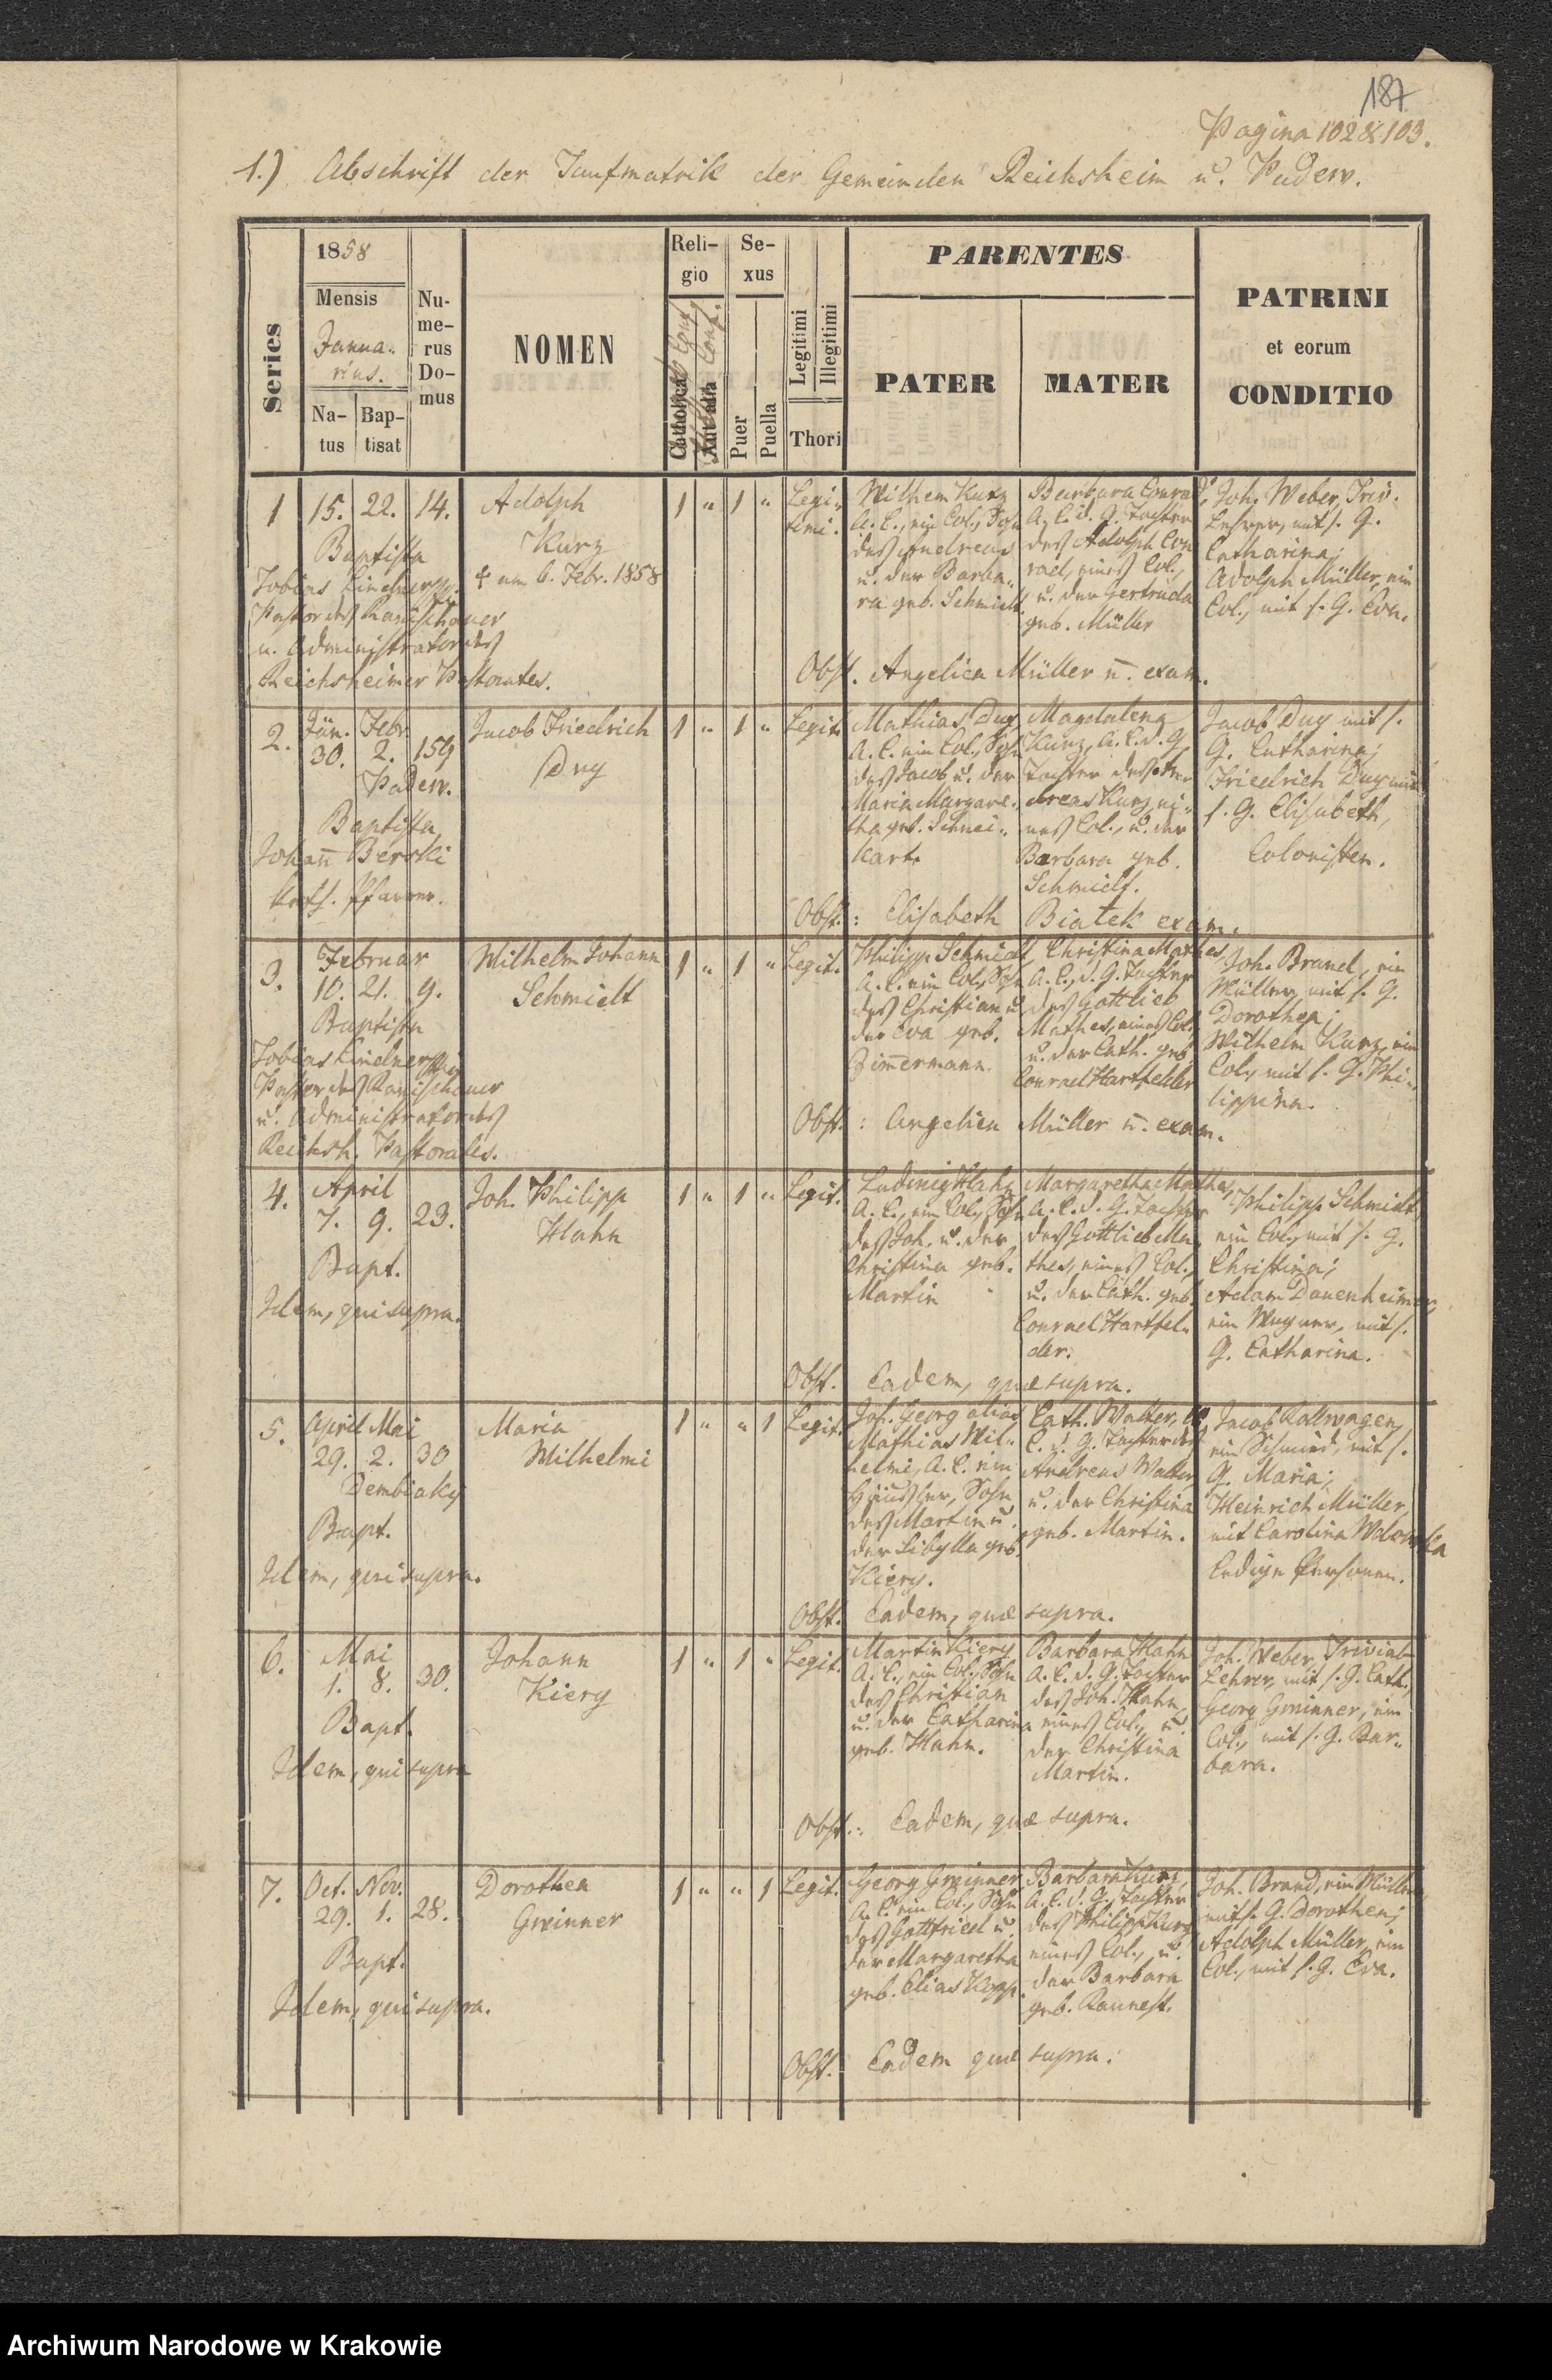 187
Pagina 102 & 103.
1.) Abschrift der Taufmatrik der Gemeinden Reichsheim u. Padew.
Series
1858
Mensis
Janua-
rius.
Na-
tus
Bap-
tisat
Nu-
me-
rus
Do-
mus
NOMEN
Reli-
gio
Catholica
Aut alia
Conf.
Conf.
Se-
xus
Puer
Puella
Legitimi
Illegitimi
Thori
PARENTES
PATER
MATER
PATRINI
et eorum
CONDITIO
1
15.
22.
14.
Baptista
Tobias
Pastor des Ranischauer
u. Administrator des
Reichsheimer Pastorates.
Adolph
Kurz
† am 6. Febr. 1858
1 " 1 "
Legi-
timi.
Wilhem Kurz
A. C., ein Col., Sohn
des Andreas
u. der Barba-
ra geb. Schmidt.
Barbara Conrad,
A. C. d. G. Tochter
des Adolph Con
rad, eines Col.,
u. der Gertruda
geb. Müller
Joh. Weber, Triv.
Lehrer, mit s. G.
Catharina;
Adolph Müller, ein
Col., mit s. G. Eva.
Obst. Angelica Müller u. exam.
2.
Jän. Febr.
30. 2. 159
Padew.
Baptista
Johann Berski
kath. Pfarrer.
Jacob Friedrich
Duy
1 " 1 "
Legit.
Mathias Duy
A. C. ein Col., Sohn
des Jacob u. der
Maria Margare-
tha geb. Schnei-
kart.
Magdalena
Kurz, A. C. d. G.
Tochter des An-
dreas Kurz, ei-
nes Col., u. der
Barbara geb.
Schmidt.
Jacob Duy mit s.
G. Catharina;
Friedrich Duy mit
s. G. Elisabeth,
Colonisten.
Obst.: Elisabeth Biatek exam.
3.
Februar
10. 21. 9.
Baptista
Tobias
Pastor des Ranischauer
u. Administrator des
Reichsh. Pastorates.
Wilhelm Johann
Schmidt
1 " 1 "
Legit.
Philipp Schmidt,
A. C. ein Col., Sohn
des Christian u.
der Eva geb.
Zimmermann.
Christina Mathes,
A. C., d. G. Tochter
des Gottlieb
Mathes, eines Col.,
u. der Cath. geb.
Conrad Hartfelder
Joh. Brand, ein
Müller, mit s. G.
Dorothea;
Wilhelm Kurz, ein
Col., mit s. G. Phi-
lippina.
Obst.: Angelica Müller u. exam.
4.
April
7. 9. 23.
Bapt.
Idem, qui supra.
Joh. Philipp
Hahn
1 " 1 "
Legit.
Ludwig Hahn
A. C., ein Col., Sohn
des Joh. u. der
Christina geb.
Martin
Margaretha Mathes,
A. C. d. G. Tochter
des Gottlieb Ma-
thes, eines Col.,
u. der Cath. geb.
Conrad Hartfel-
der.
Philipp Schmidt,
ein Col., mit s. G.
Christina;
Adam Dauenheimer,
ein Wagner, mit s.
G. Catharina.
Obst. Eadem, quæ supra.
5.
April Mai
29. 2. 30
Dembiaky
Bapt.
Idem, qui supra.
Maria
Wilhelmi
1 " " 1
Legit.
Joh. Georg alias
Mathias Wil-
helmi, A. C. ein
Häusler, Sohn
des Martin u.
der Sibylla geb.
Kiery.
Cath. Walter, A.
C. d. G. Tochter des
Andreas Walter
u. der Christina
geb. Martin.
Jacob Kallwagen,
ein Schmied, mit s.
G. Maria;
Heinrich Müller,
mit Carolina
Ledige Personen.
Obst. Eadem, quæ supra.
6.
Mai
1. 8. 30.
Bapt.
Idem, qui supra
Johann
Kiery
1 " 1 "
Legit.
Martin Kiery
A. C., ein Col., Sohn
des Christian
u. der Catharina
geb. Hahn.
Barbara Hahn
A. C. d. G. Tochter
des Joh. Hahn,
eines Col., u.
der Christina
Martin.
Joh. Weber, Trivial-
Lehrer, mit s. G. Cath.,
Georg Gminner, ein
Col., mit s. G. Bar-
bara.
Obst.: Eadem, quæ supra.
7.
Oct. Nov.
29. 1. 28.
Bapt.
Idem, qui supra.
Dorothea
Gminner
1 " " 1
Legit.
Georg Gminner
A. C. ein Col., Sohn
des Gottfried u.
der Margaretha
geb. Elias Kopp.
Barbara Kurz,
A. C. d. G., Tochter
des Philipp Kurz
eines Col., u.
der Barbara
geb.
Joh. Brand, ein Müller,
mit s. G. Dorothea;
Adolph Müller, ein
Col., mit s. G. Eva.
Obst. Eadem quæ supra.
Archiwum Narodowe w Krakowie